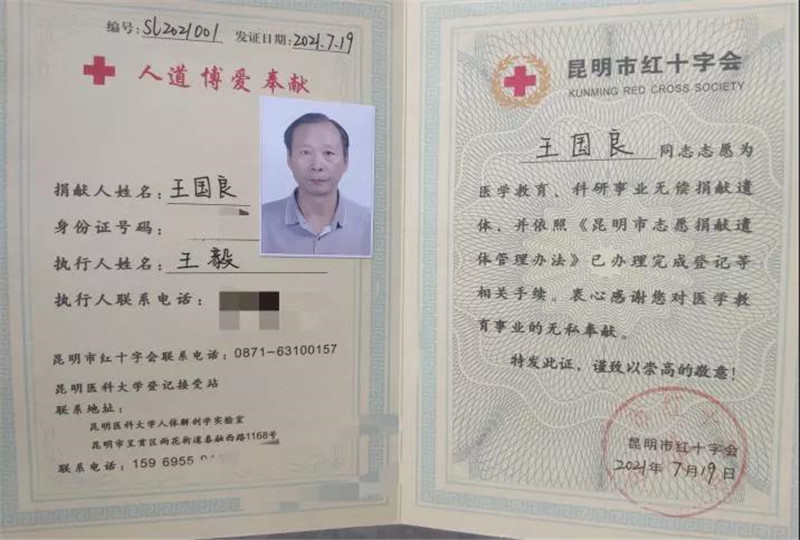 编号: SL2021001 发证日期: 2021.7.19
人道博爱奉献
捐献人姓名: 王国良
身份证号码:
执行人姓名: 王毅
执行人联系电话:
昆明市红十字会联系电话: 0871-63100157
昆明医科大学登记接受站
联系地址:
昆明医科大学人体解剖学实验室
昆明市呈贡区雨花街道春融西路1168号
联系电话: 159 6955
昆明市红十字会
KUNMING RED CROSS SOCIETY
王国良 同志志愿为
医学教育、科研事业无偿捐献遗
体，并依照《昆明市志愿捐献遗
体管理办法》已办理完成登记等
相关手续。衷心感谢您对医学教
育事业的无私奉献。
特发此证，谨致以崇高的敬意！
昆明市红十字会
2021年7月19日